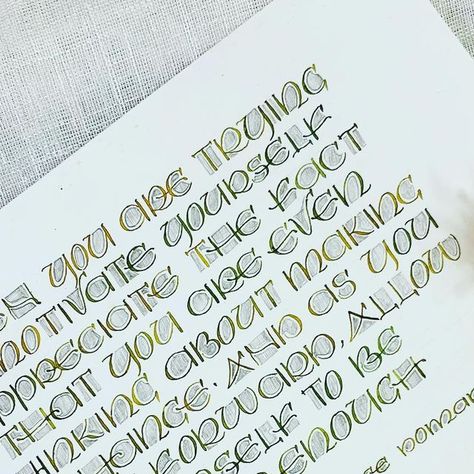 EN YOU ARE TRYING
MOTIVATE YOURSELF
PPRECIATE THE FACT
THAT YOU ARE EVEN
INKING ABOUT MAKING
HANGE. AND AS YOU
FORWARD, ALLOW
SELF TO BE
ENOUGH
CE DOMAR